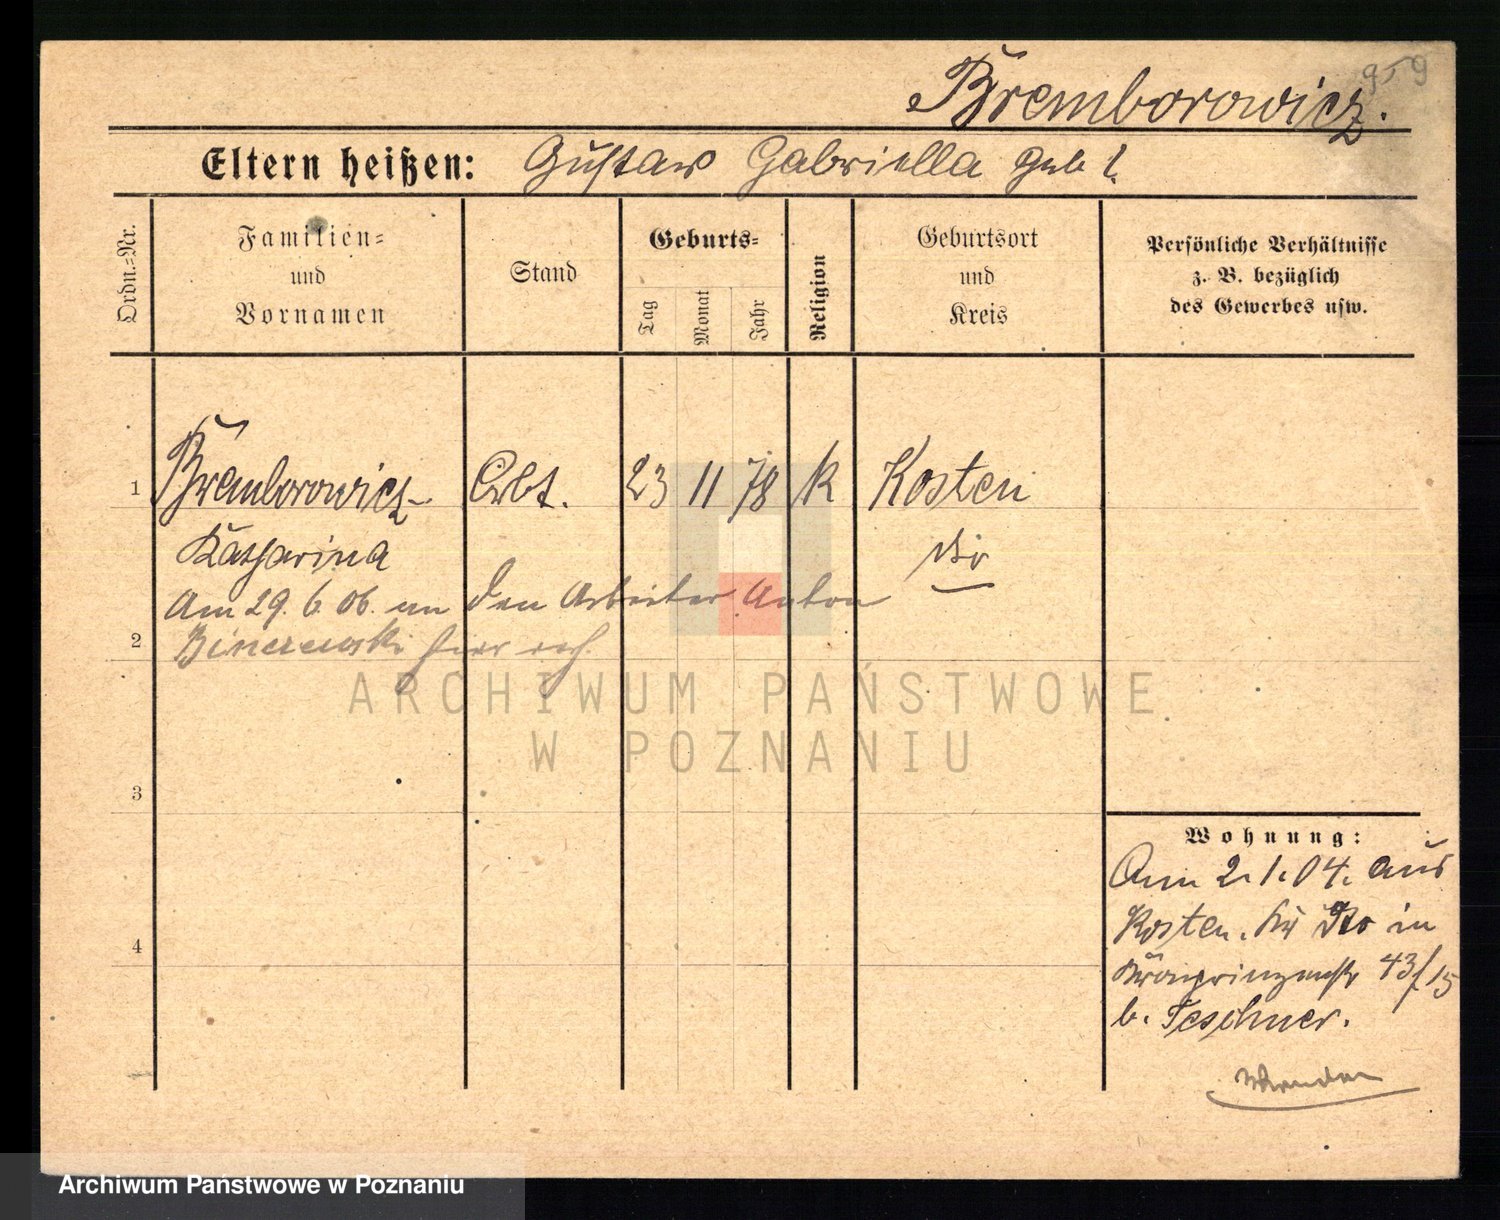 959
Bremborowicz.
Eltern heißen: Gustav Gabriella geb
Ordn.=Nr.
Familien=
und
Vornamen
Stand
Geburts=
Tag
Monat
Jahr
Religion
Geburtsort
und
Kreis
Persönliche Verhältnisse
z. B. bezüglich
des Gewerbes usw.
1 Bremborowicz Arbt. 23 11 78 K Kosten
Katharina
Am 29. 6. 06. an den Arbeiter Anton
2
3
4
Wohnung:
Am 2.1.04. aus
Kosten. in
Kronprinzenstr 43/15
b. Teschner.
ARCHIWUM PAŃSTWOWE
W POZNANIU
Archiwum Państwowe w Poznaniu